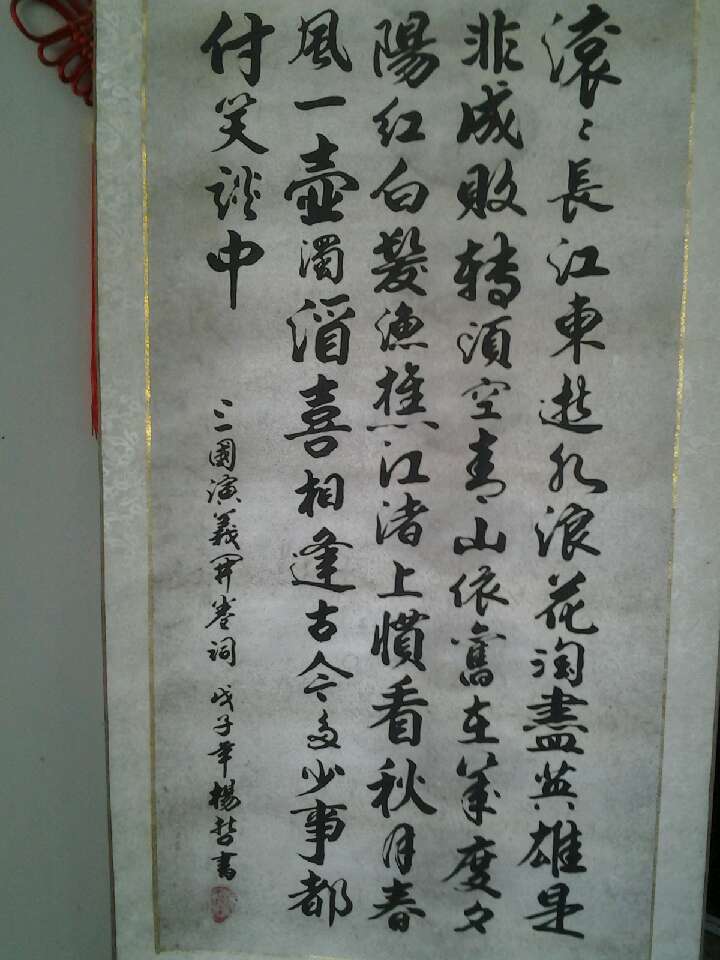 滚〻長江東逝水浪花淘盡英雄是
非成敗轉頭空青山依舊在幾度夕
陽紅白髮漁樵江渚上慣看秋月春
風一壺濁酒喜相逢古今多少事都
付笑談中
三國演義開卷詞 戊子年楊哲書